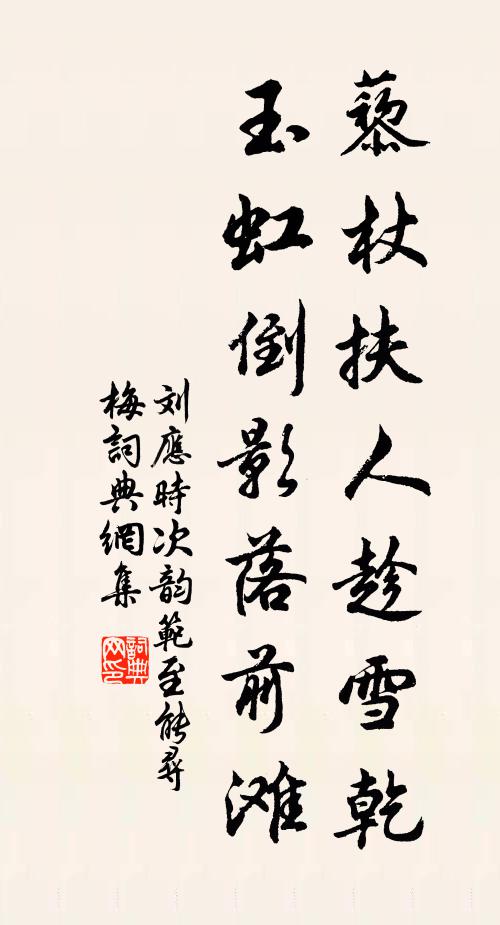 藜杖扶人趁雪乾
玉虹倒影落前滩
刘應時次韵範至能尋
梅詞典網集
詞典网印